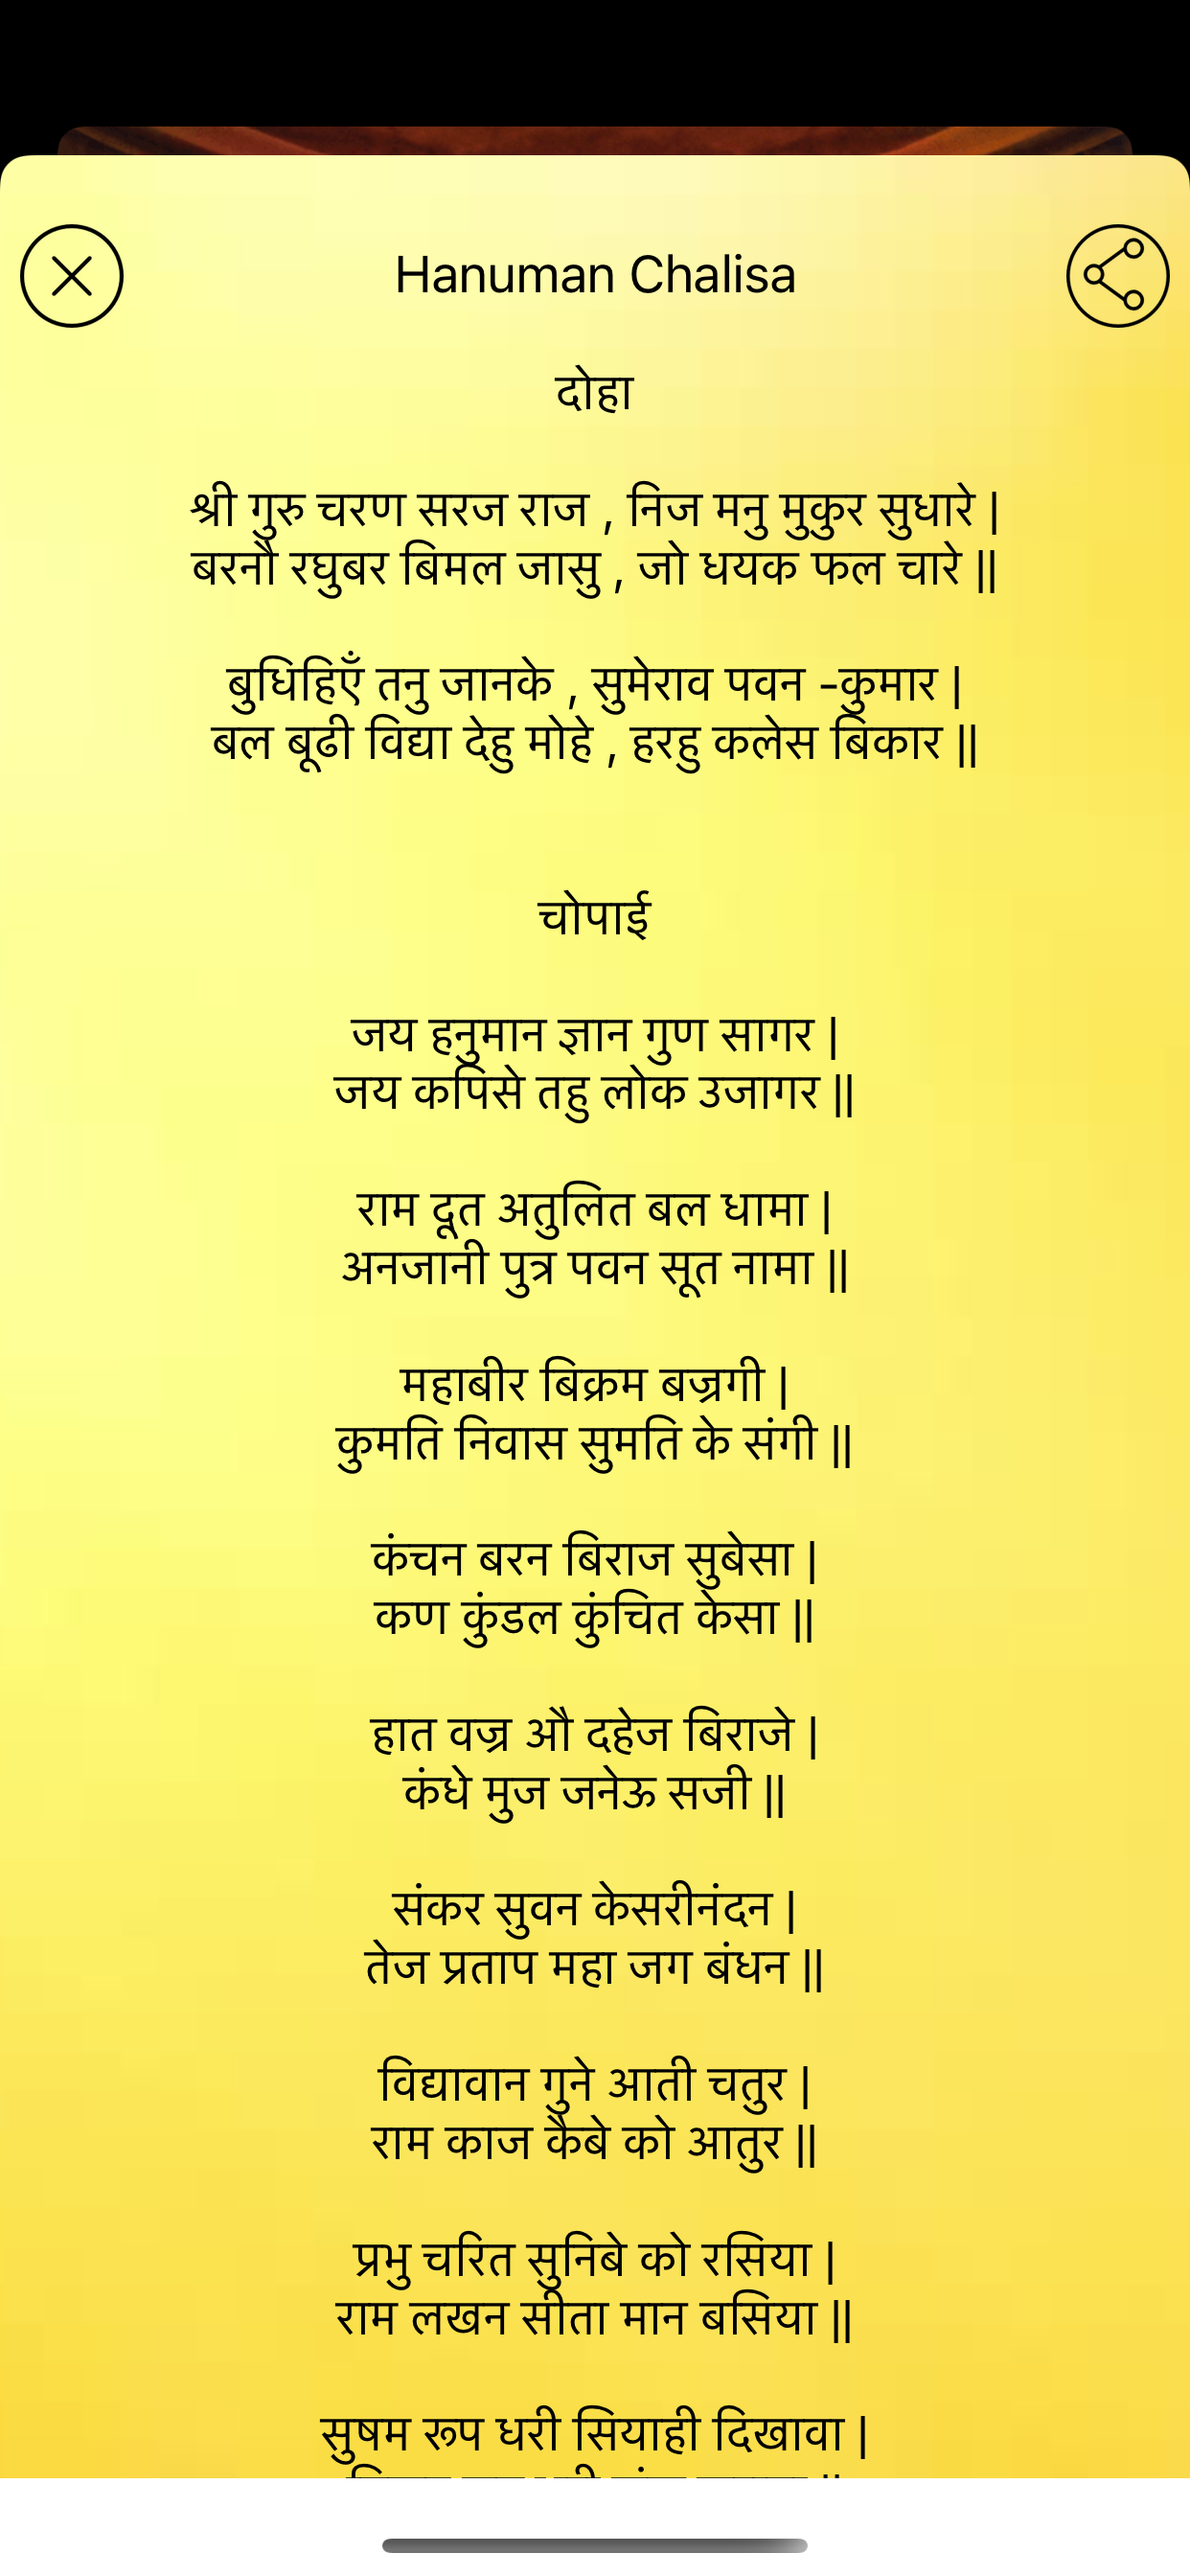 Hanuman Chalisa
दोहा
श्री गुरु चरण सरज राज , निज मनु मुकुर सुधारे |
बरनौ रघुबर बिमल जासु , जो धयक फल चारे ||
बुधिहिएँ तनु जानके , सुमेराव पवन -कुमार |
बल बूढी विद्या देहु मोहे , हरहु कलेस बिकार ||
चोपाई
जय हनुमान ज्ञान गुण सागर |
जय कपिसे तहु लोक उजागर ||
राम दूत अतुलित बल धामा |
अनजानी पुत्र पवन सूत नामा ||
महाबीर बिक्रम बज्रगी |
कुमति निवास सुमति के संगी ||
कंचन बरन बिराज सुबेसा |
कण कुंडल कुंचित केसा ||
हात वज्र औ दहेज बिराजे |
कंधे मुज जनेऊ सजी ||
संकर सुवन केसरीनंदन |
तेज प्रताप महा जग बंधन ||
विद्यावान गुने आती चतुर |
राम काज कैबे को आतुर ||
प्रभु चरित सुनिबे को रसिया |
राम लखन सीता मान बसिया ||
सुषम रूप धरी सियाही दिखावा |